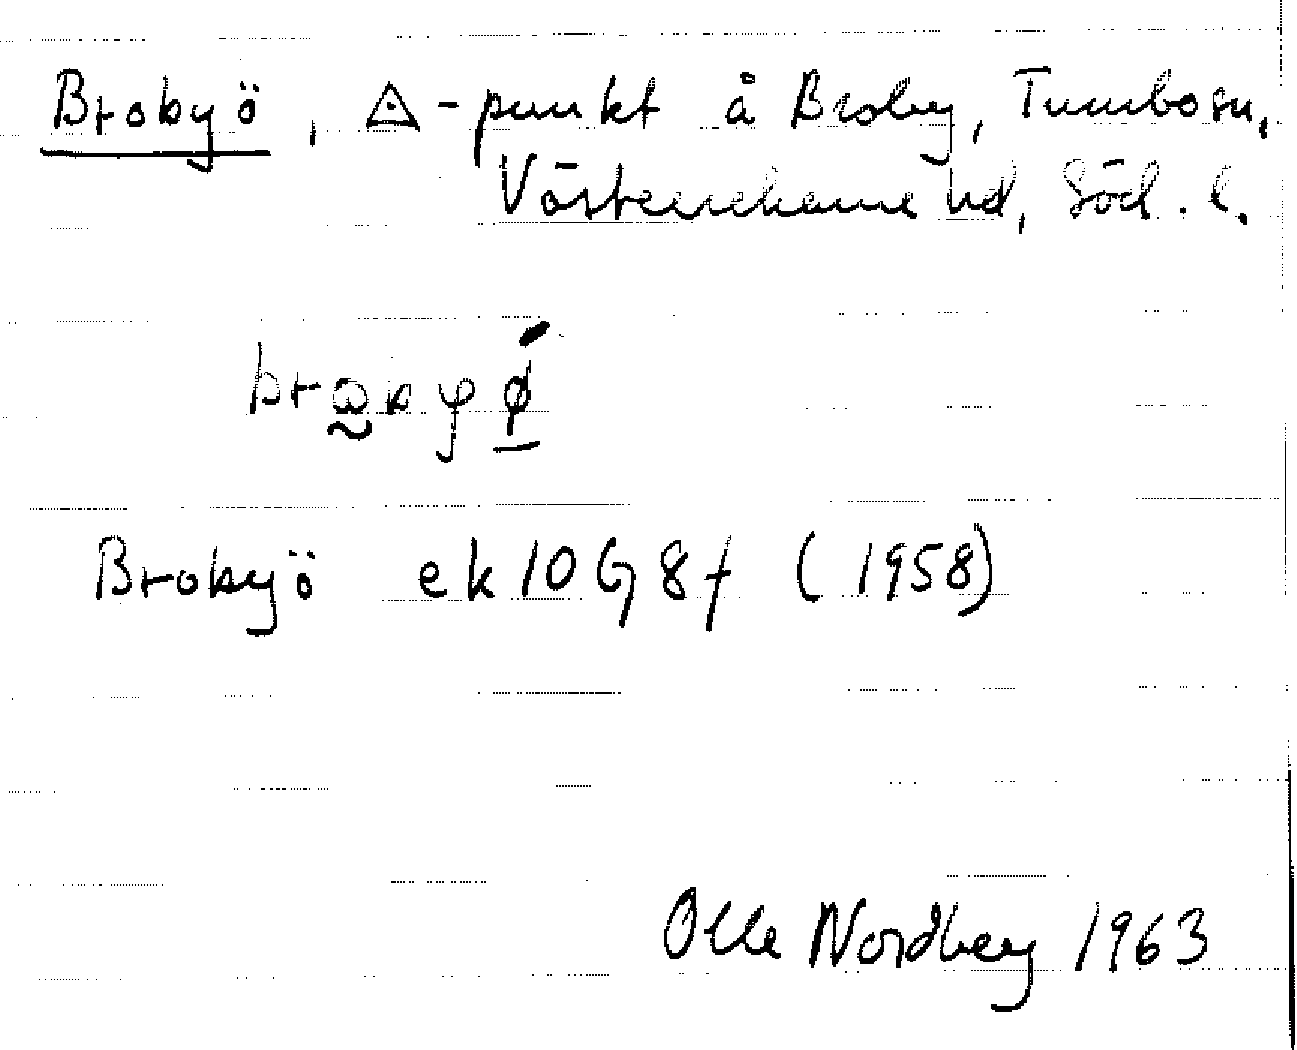 Brobyö, △-punkt å Broby, Tumbo sn,
Västerrekarne hd, Söd. l.
Brobyö ek 10 G 8 f (1958)
Olle Nordberg 1963